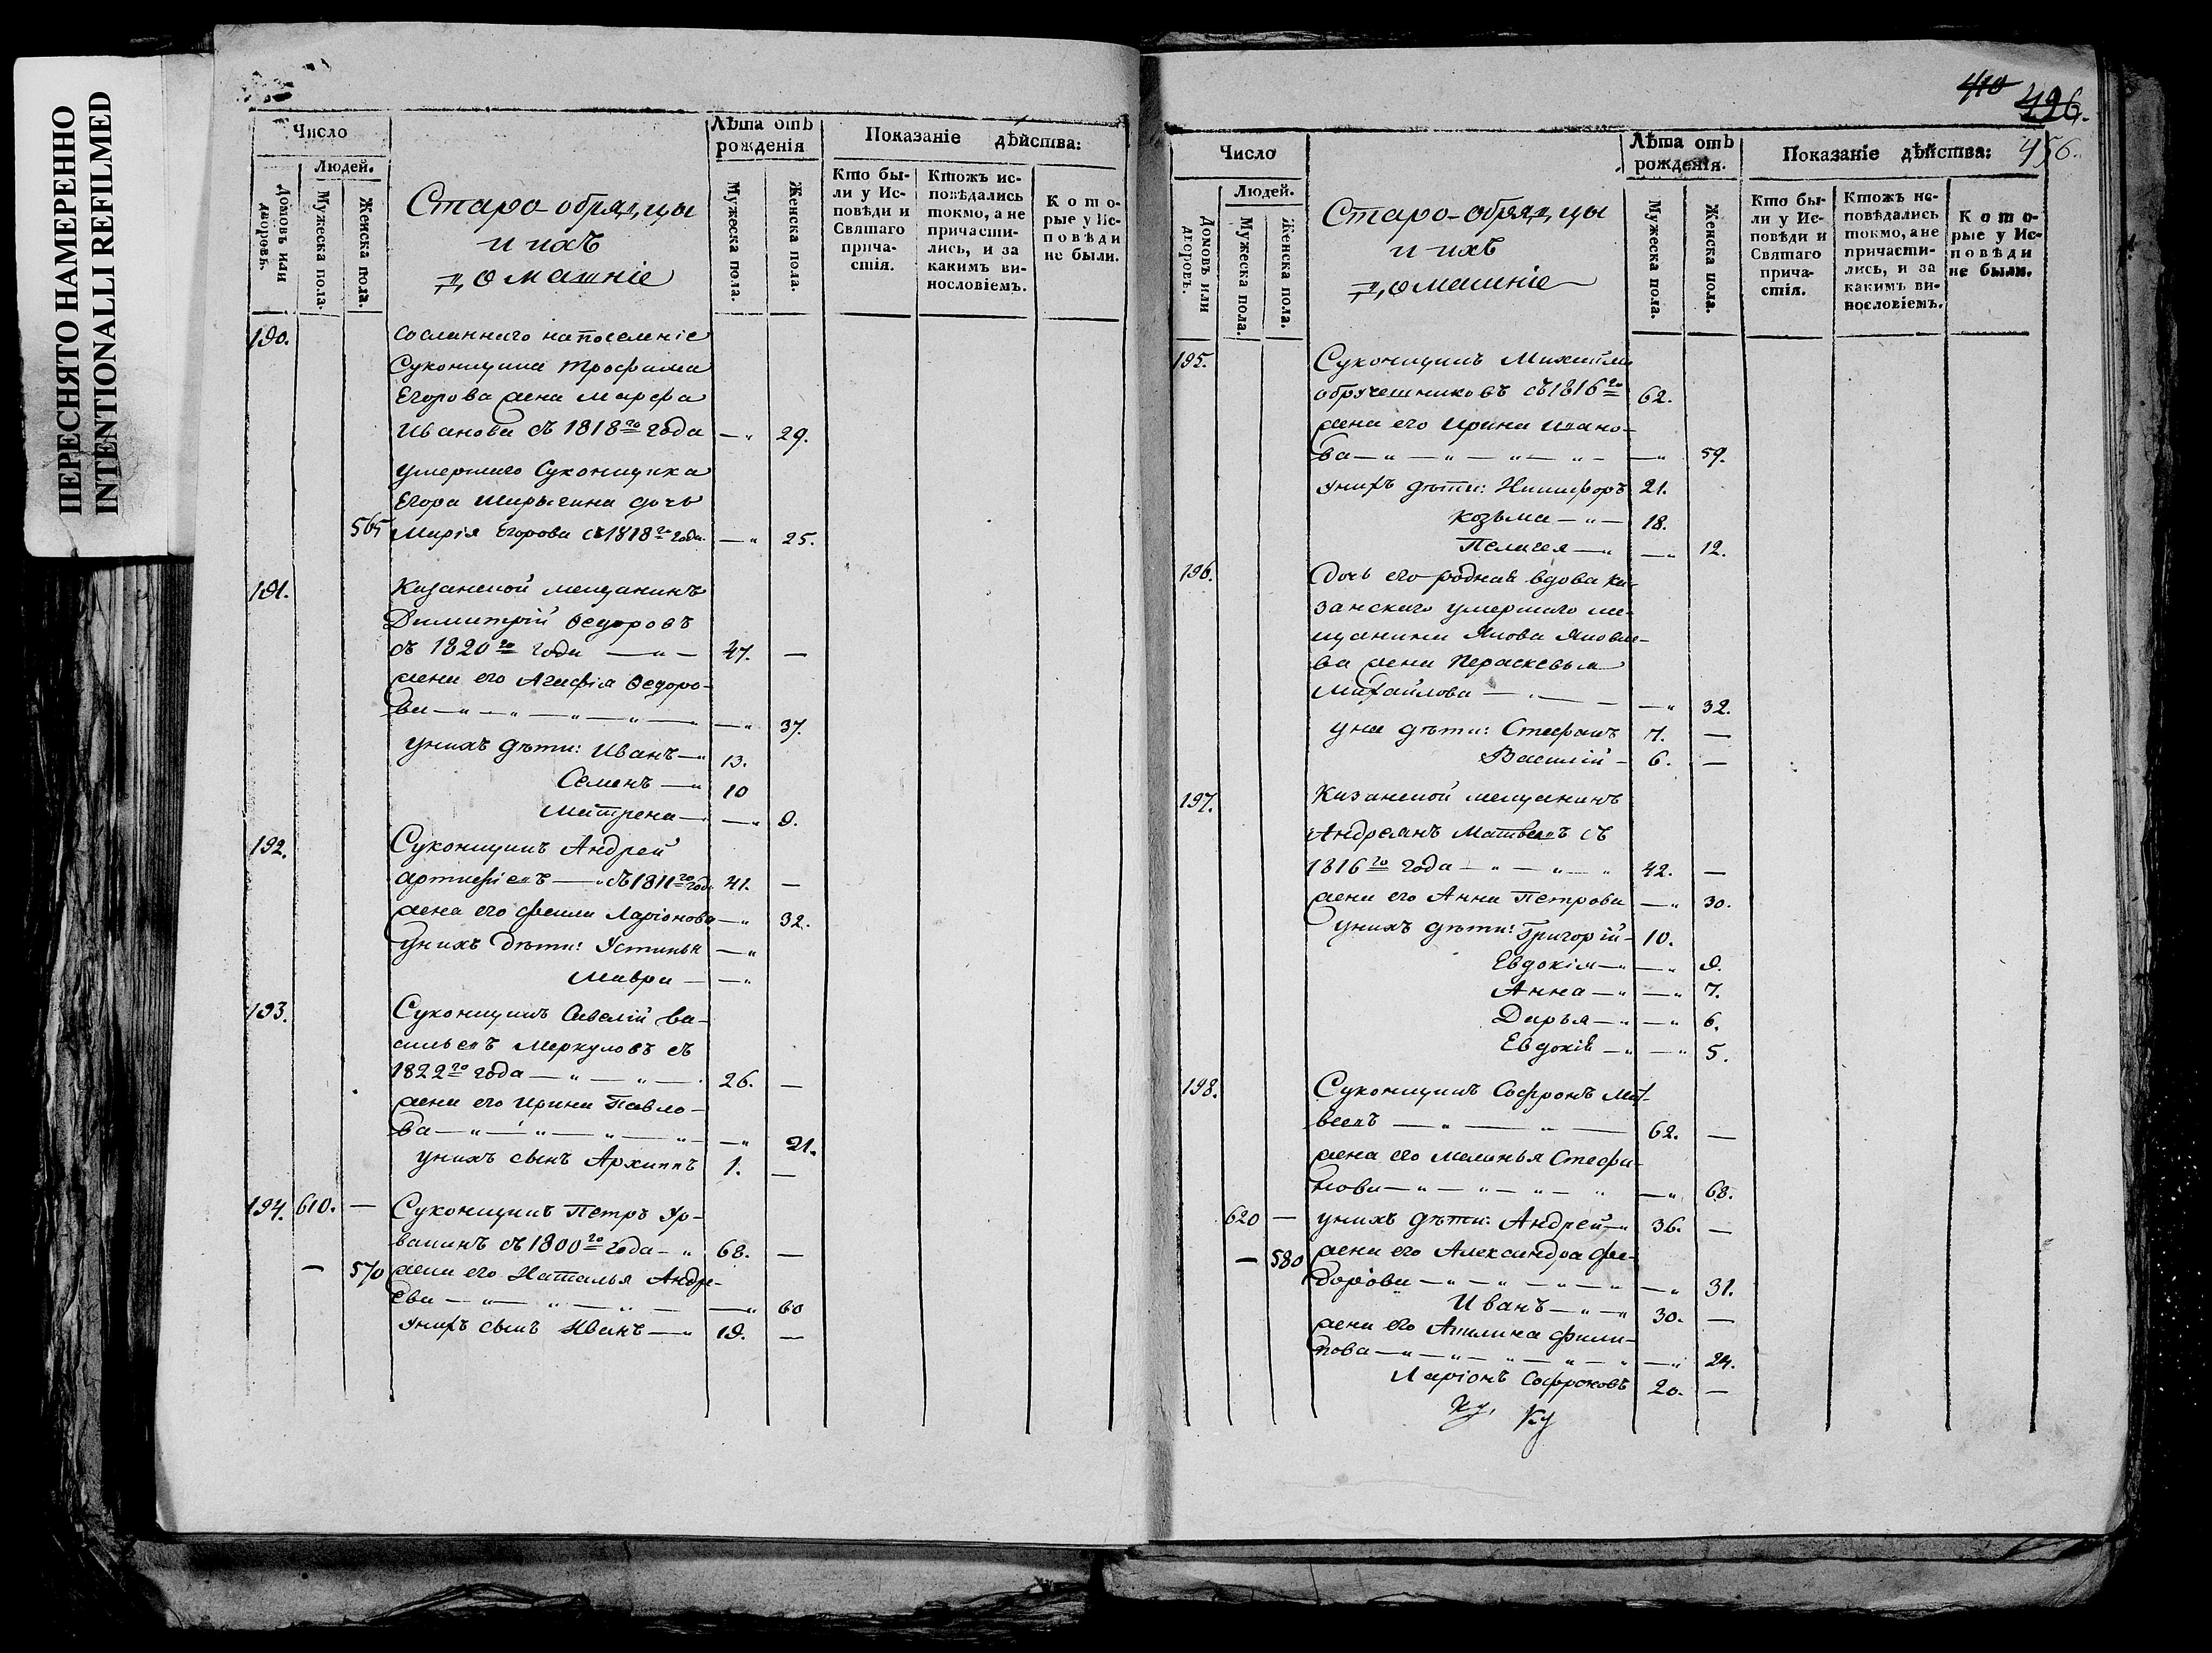 ПЕРЕСНЯТО НАМЕРЕННО
INTENTIONALLI REFILMED
Число
Людей.
Домовъ или дворовъ.
Мужеска пола.
Женска пола.
Старо-обрядцы
и ихъ
домашніе
Лѣта отъ рожденія
Мужеска пола.
Женска пола.
Показаніе дѣйства:
Кто бы-
ли у Ис-
повѣди и
Святаго
прича-
стія.
Ктожъ ис-
повѣдались
токмо, а не
причасти-
лись, и за
какимъ ви-
нословіемъ.
Кото-
рые у Ис-
повѣди
не были.
190. Сосланнаго на поселеніе
Суконщика Трофима
Егорова жена Марфа
Иванова съ 1818го года — " 29.
умершаго Суконщика
Егора Ширыгина дочь
565 Марія Егорова съ 1818го года. — " 25.
191. Казанской мещанинъ
Димитрій Ѳедоровъ
съ 1820го года — " — 47. —
жена его Агафія Ѳедоро-
ва — " — " — " — " — — " 37.
у нихъ дѣти: Иванъ — " 13.
Семенъ — " 10
Матрена — — " 9.
192. Суконщикъ Андрей
Артиевъ — " съ 1811го года 41. —
жена его Фекла Ларіонова — " 32.
у нихъ дѣти: Устинья — "
Мавра — — "
193. Суконщикъ Савелій Ва-
сильевъ Меркуловъ съ
1822го года — " — " — 26. —
жена его Ирина Павло-
ва — " — " — " — " — — " 21.
у нихъ сынъ Архиппъ 1. —
194. 610. — Суконщикъ Петръ Ур-
ванинъ съ 1800го года — " 68. —
— 570 жена его Наталья Андре-
ева — " — " — " — — " 60
у нихъ сынъ Иванъ — " 19. —
410
496.
456.
Число
Людей.
Домовъ или дворовъ.
Мужеска пола.
Женска пола.
Старо-обрядцы
и ихъ
домашніе
Лѣта отъ рожденія.
Мужеска пола.
Женска пола.
Показаніе дѣйства:
Кто бы-
ли у Ис-
повѣди и
Святаго
прича-
стія.
Ктожъ ис-
повѣдались
токмо, а не
причасти-
лись, и за
какимъ ви-
нословіемъ.
Кото-
рые у Ис-
повѣди
не были.
195. Суконщикъ Михайла
Обручешниковъ съ 1816го 62.
жена его Ирина Ивано-
ва — " — " — " — " — — " 59.
у нихъ дѣти: Никифоръ 21.
Козьма — " — 18.
Пелагея — " — " 12.
196. Дочь его родная вдова ка-
занскаго умершаго ме-
щанина Якова Яковле-
ва жена Параскевья
Михайлова — " — — — " 32.
у ней дѣти: Стефанъ 7. —
Василій — 6. —
197. Казанской мещанинъ
Андреянъ Матвеевъ съ
1816го года — " — " — " 42. —
жена его Анна Петрова — " 30.
у нихъ дѣти: Григорій — 10.
Евдокія — " — " 9.
Анна — " — " 7.
Дарья — " — " 6.
Евдокія — " — " 5.
198. Суконщикъ Софронъ Мат-
веевъ — " — " — 62. —
жена его Маланья Стефа-
нова — " — " — " — " — " 68.
620 — у нихъ дѣти: Андрей — " 36. —
— 580 жена его Александра Фе-
дорова — " — " — " — " — — " 31.
Иванъ — " — " 30. —
жена его Акилина Фили-
пова — " — " — " — " — " — " 24.
Ларіонъ Софроновъ 20. —